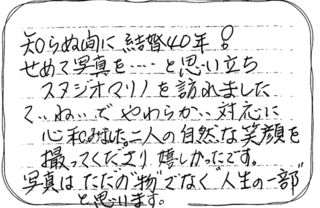 知らぬ間に結婚40年!
せめて写真を‥‥と思い立ち
スタジオマリノを訪れました
ていねいでやわらかい対応に
心和みました。二人の自然な笑顔を
撮ってくださり嬉しかったです。
写真はただの"物"でなく"人生の一部"
と思います。